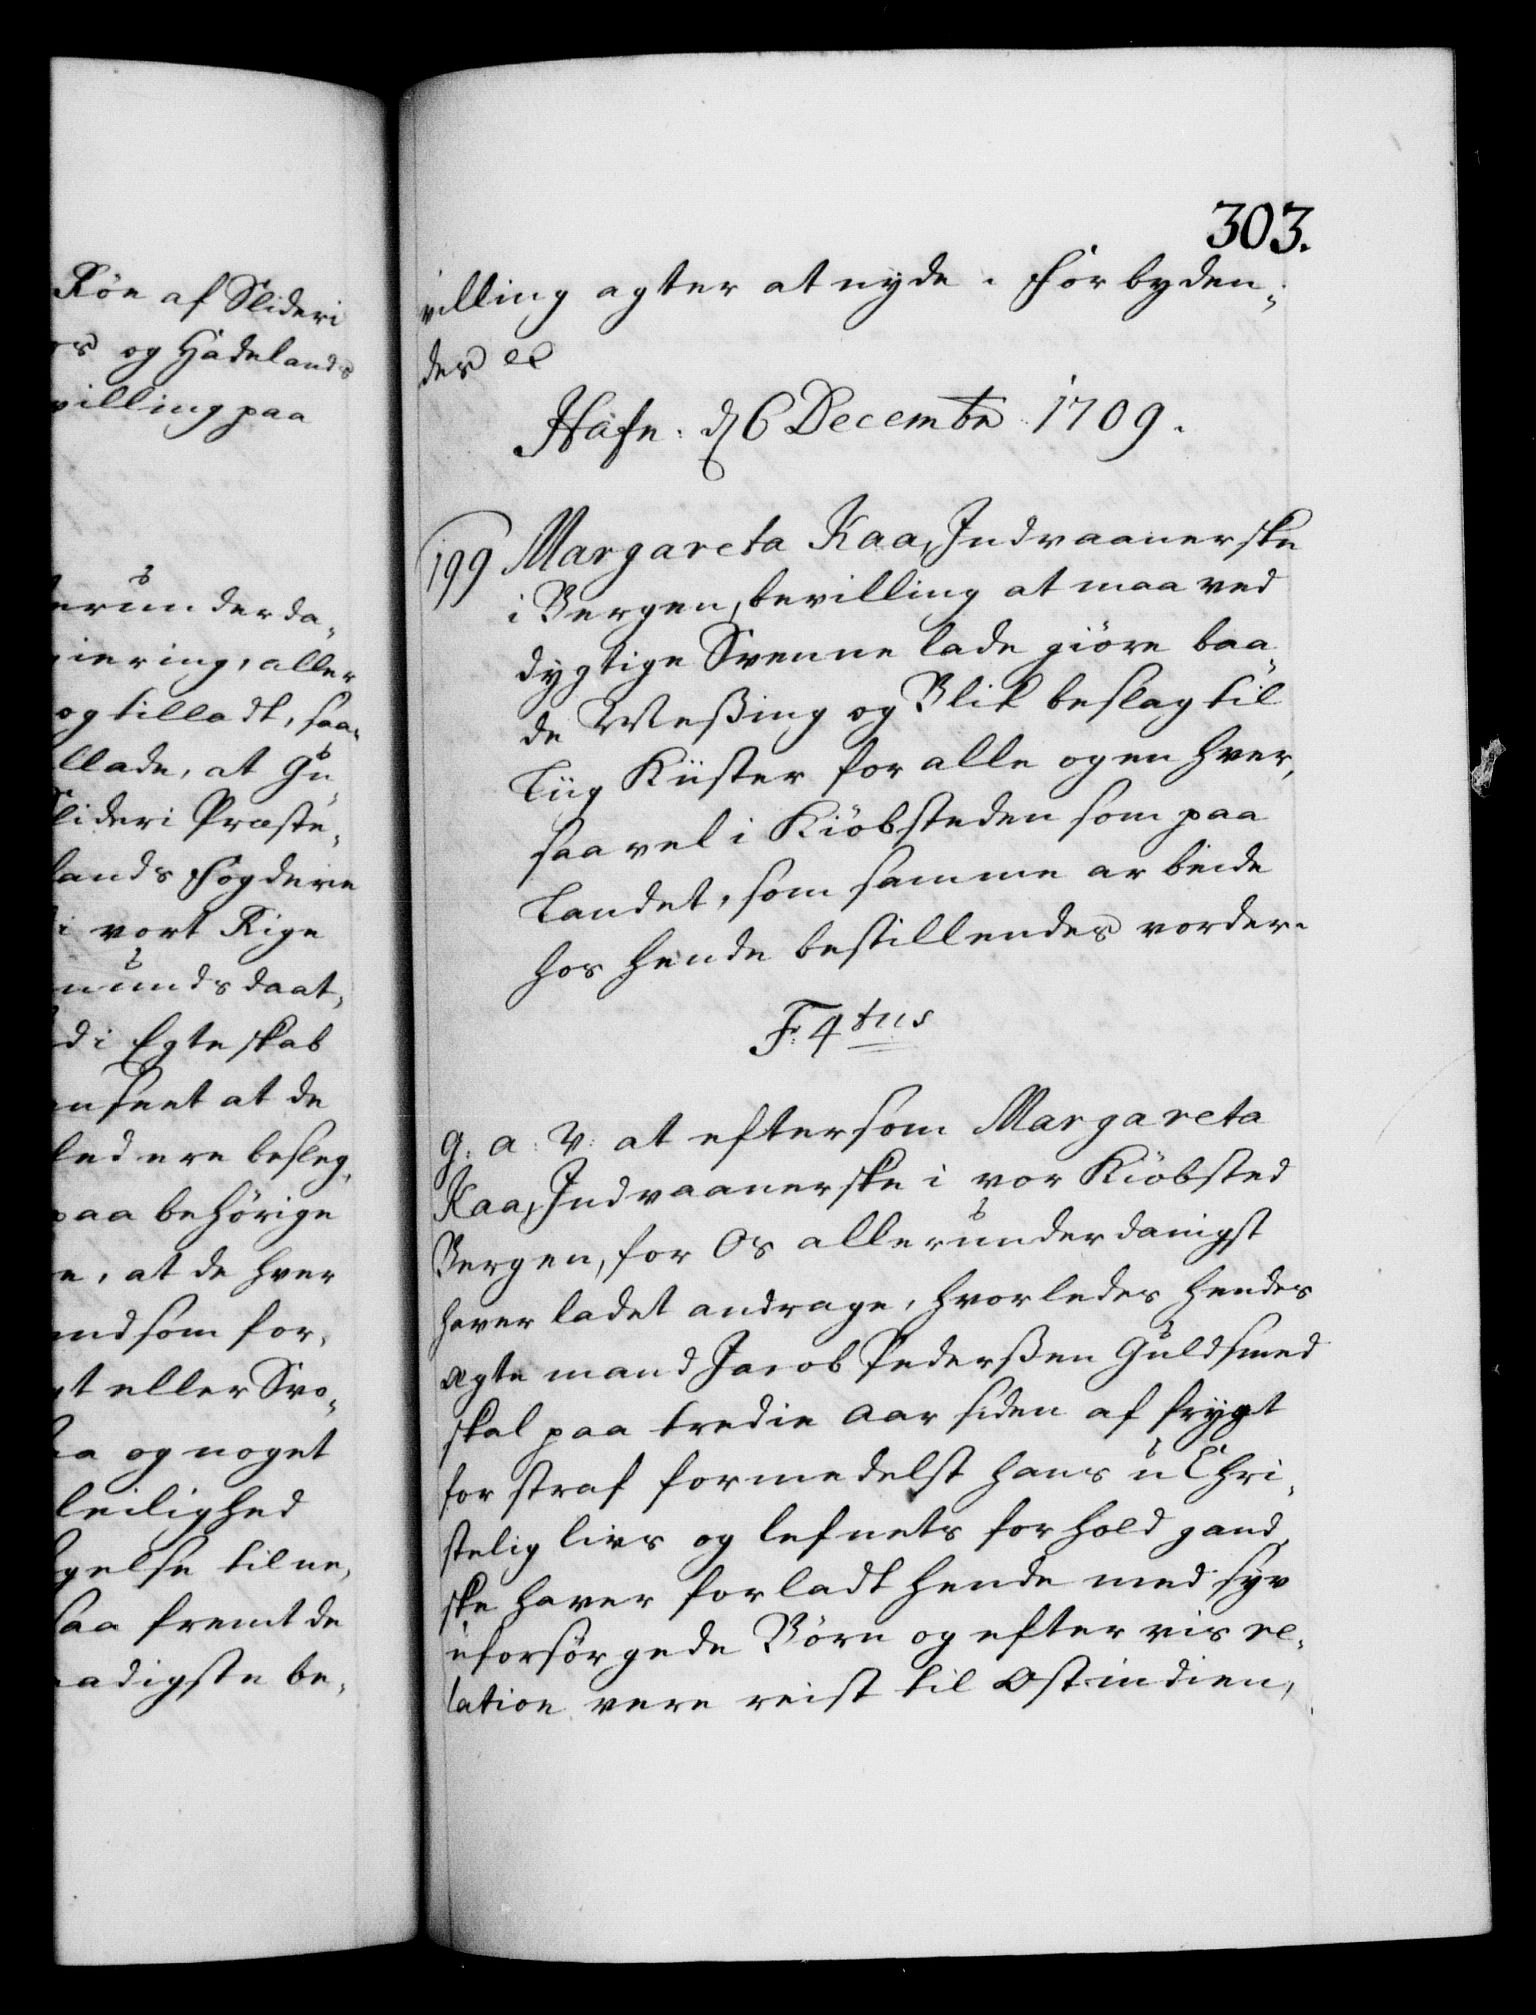 Röe af Slideri
og Hadelands
villing paa
erunderda-
giering, aller
og tilladt, saa-
llade, at Gu-
Slideri Præste-
lands Fogderie
i vort Rige
mundsdaat-
di Egteskab
anseet at de
led ere besleg-
paa behörige
e, at de hver
end som for-
gt eller Svo-
og noget
leilighed
gelse til ne-
saa fremt de
aadigste be-
303.
villing agter at nyde. Forbyden-
des etc
Hafn: d 6 Decembr 1709.
199 Margareta Kaa, Indvaanerske
i Bergen, bevilling at maa ved
dygtige Svenne lade giöre baa-
de Messing og Blik beslag til
Tüg Küster for alle og en hver,
saavel i Kiöbsteden som paa
Landet, som samme arbeide
hos hende bestillendes vorder.
F: 4tus
G: a: V: at eftersom Margareta
Kaa, Indvaanerske i vor Kiöbsted
Bergen, for Os allerunderdanigst
haver ladet andrage, hvorledes hendes
ægte mand Jacob Pederßen Guldsmed
skal paa tredie Aar siden af frygt
for straf formedelst hans u Chri-
stelig livs og lefnets forhold gand-
ske haver forladt hende med syv
uforsörgede Börn og efter vis re-
lation vere reist til Ostindien,